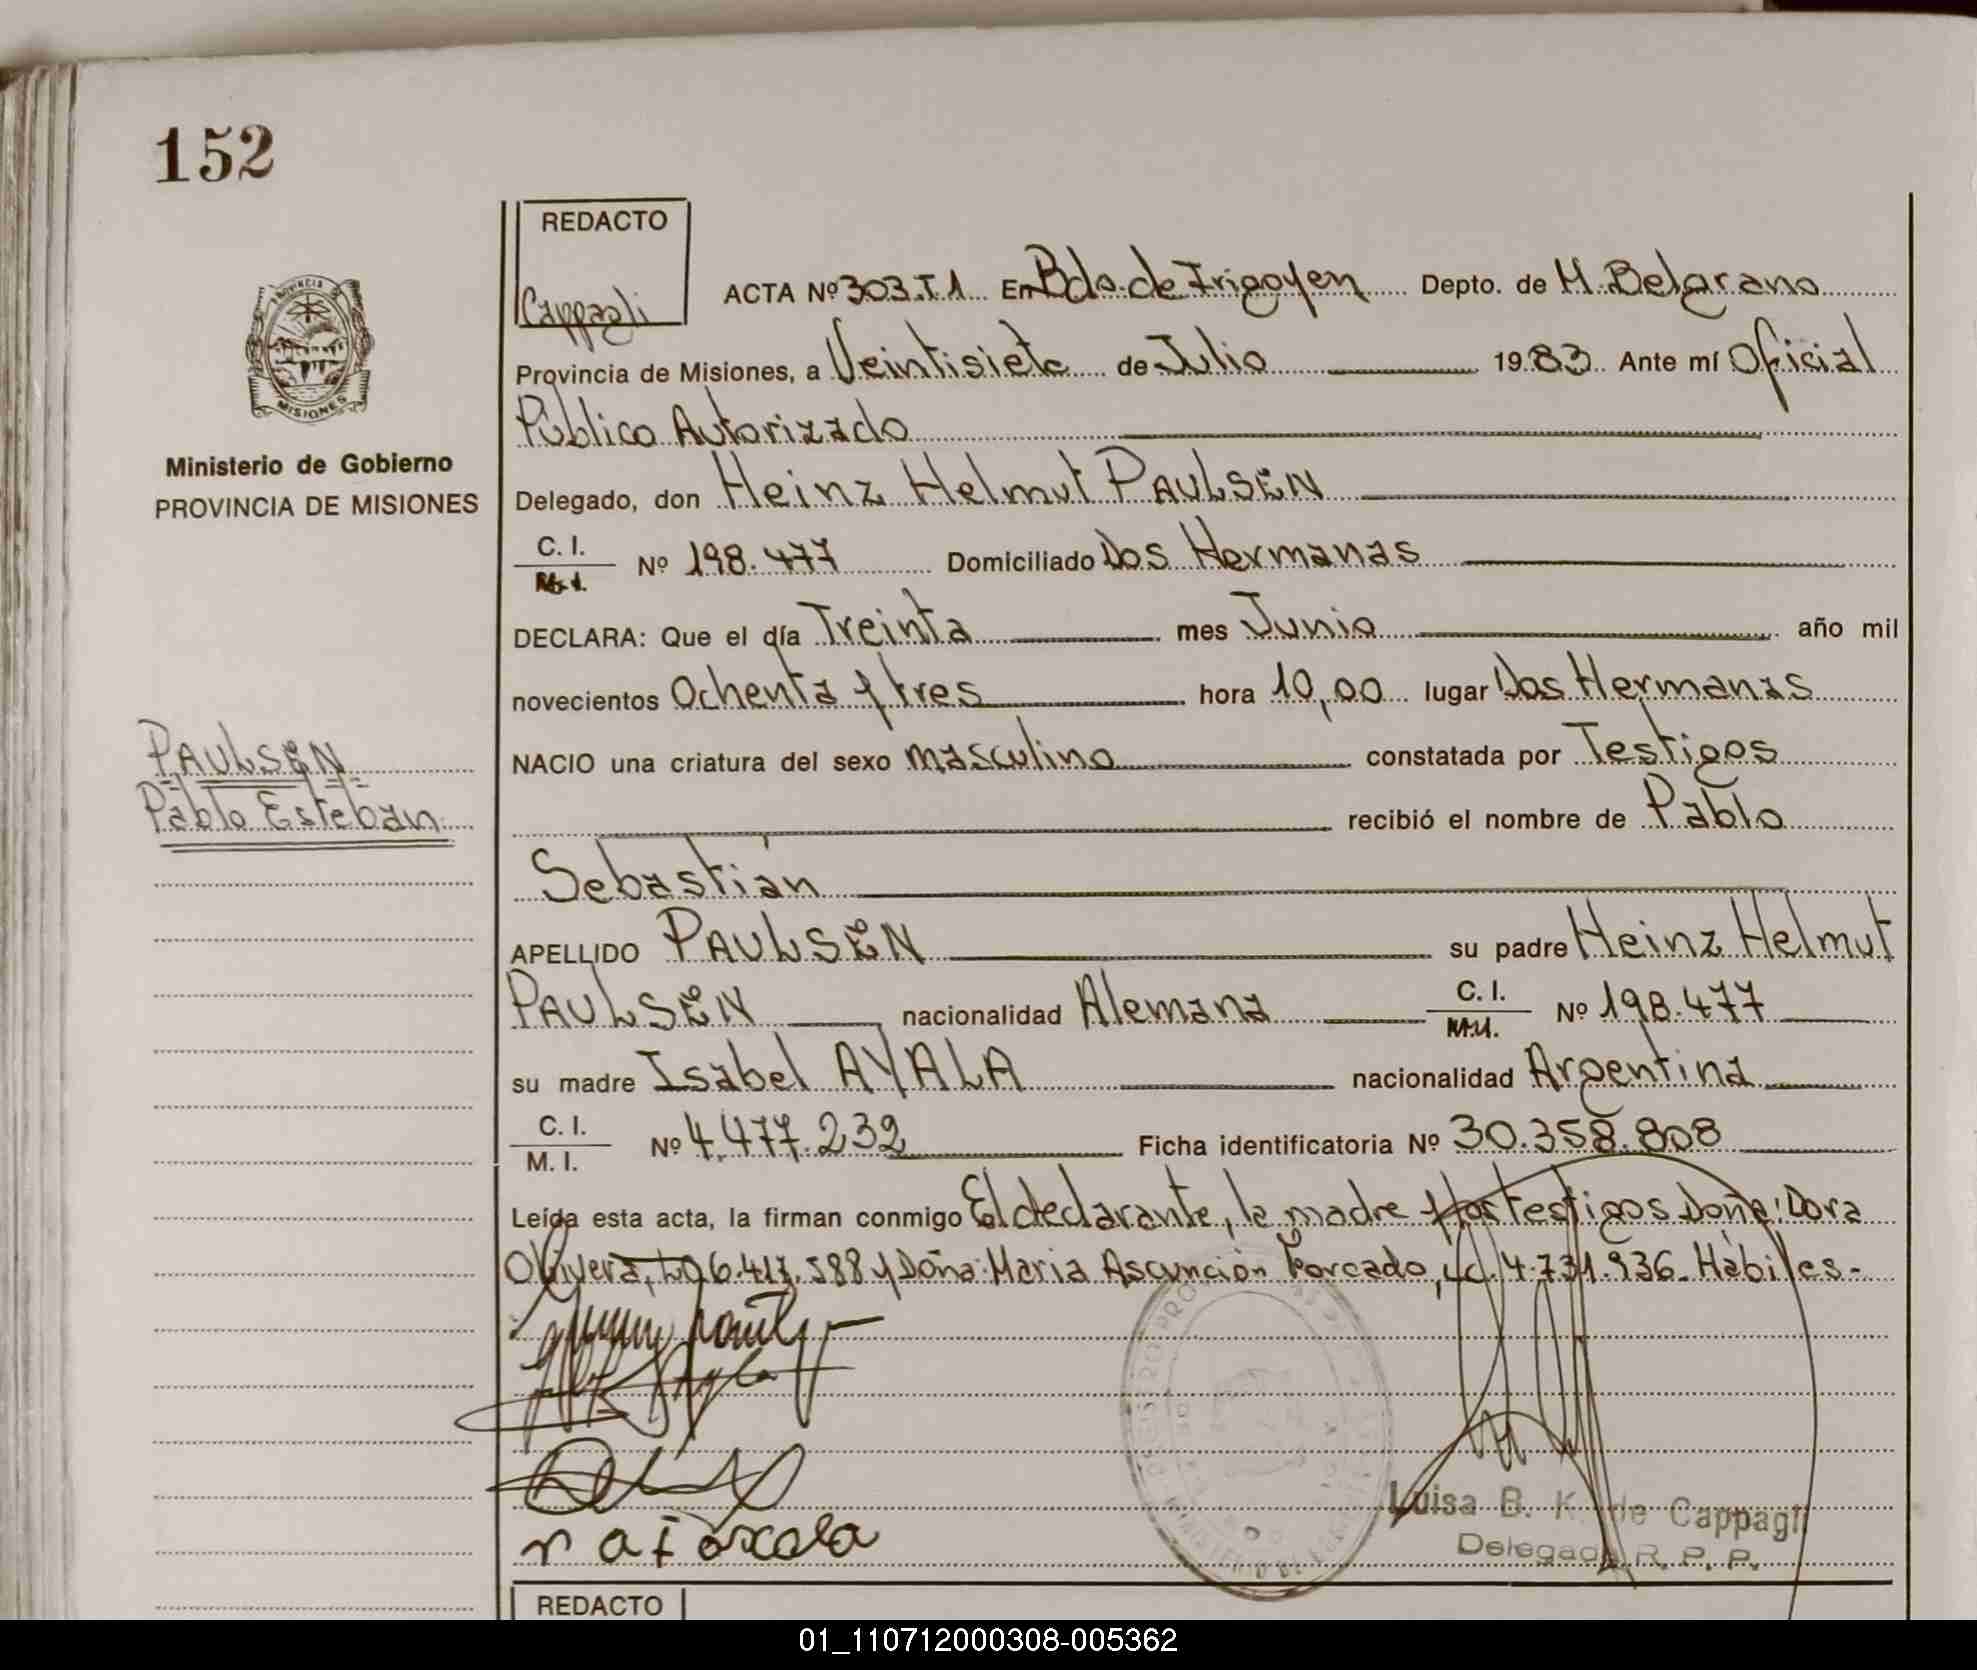 152
REDACTO
Cappagli
ACTA Nº 303.T1 En Bdo. de Irigoyen Depto. de M. Belgrano
Provincia de Misiones, a Veintisiete de Julio 1983 Ante mí Oficial
Público Autorizado
Delegado, don Heinz Helmut PAULSEN
C. I.
M. I.
Nº 198.477 Domiciliado Dos Hermanas
DECLARA: Que el día Treinta mes Junio año mil
novecientos Ochenta y tres hora 10,00 lugar Dos Hermanas
NACIO una criatura del sexo masculino constatada por Testigos
recibió el nombre de Pablo
Sebastián
APELLIDO PAULSEN su padre Heinz Helmut
PAULSEN nacionalidad Alemana C. I. Nº 198.477
M.I.
su madre Isabel AYALA nacionalidad Argentina
C. I.
M. I.
Nº 4.477.232 Ficha identificatoria Nº 30.358.808
Leída esta acta, la firman conmigo El declarante, la madre y los testigos Doña: Dora
Olivera, 6.417.588 y Doña: Maria Ascunción Forcado, Lc. 4.731.936. Hábiles.-
PROVINCIA DE
MISIONES
Ministerio de Gobierno
PROVINCIA DE MISIONES
PAULSEN
Pablo Esteban
Luisa B. K. de Cappagli
Delegada R. P. P.
REDACTO
01_110712000308-005362